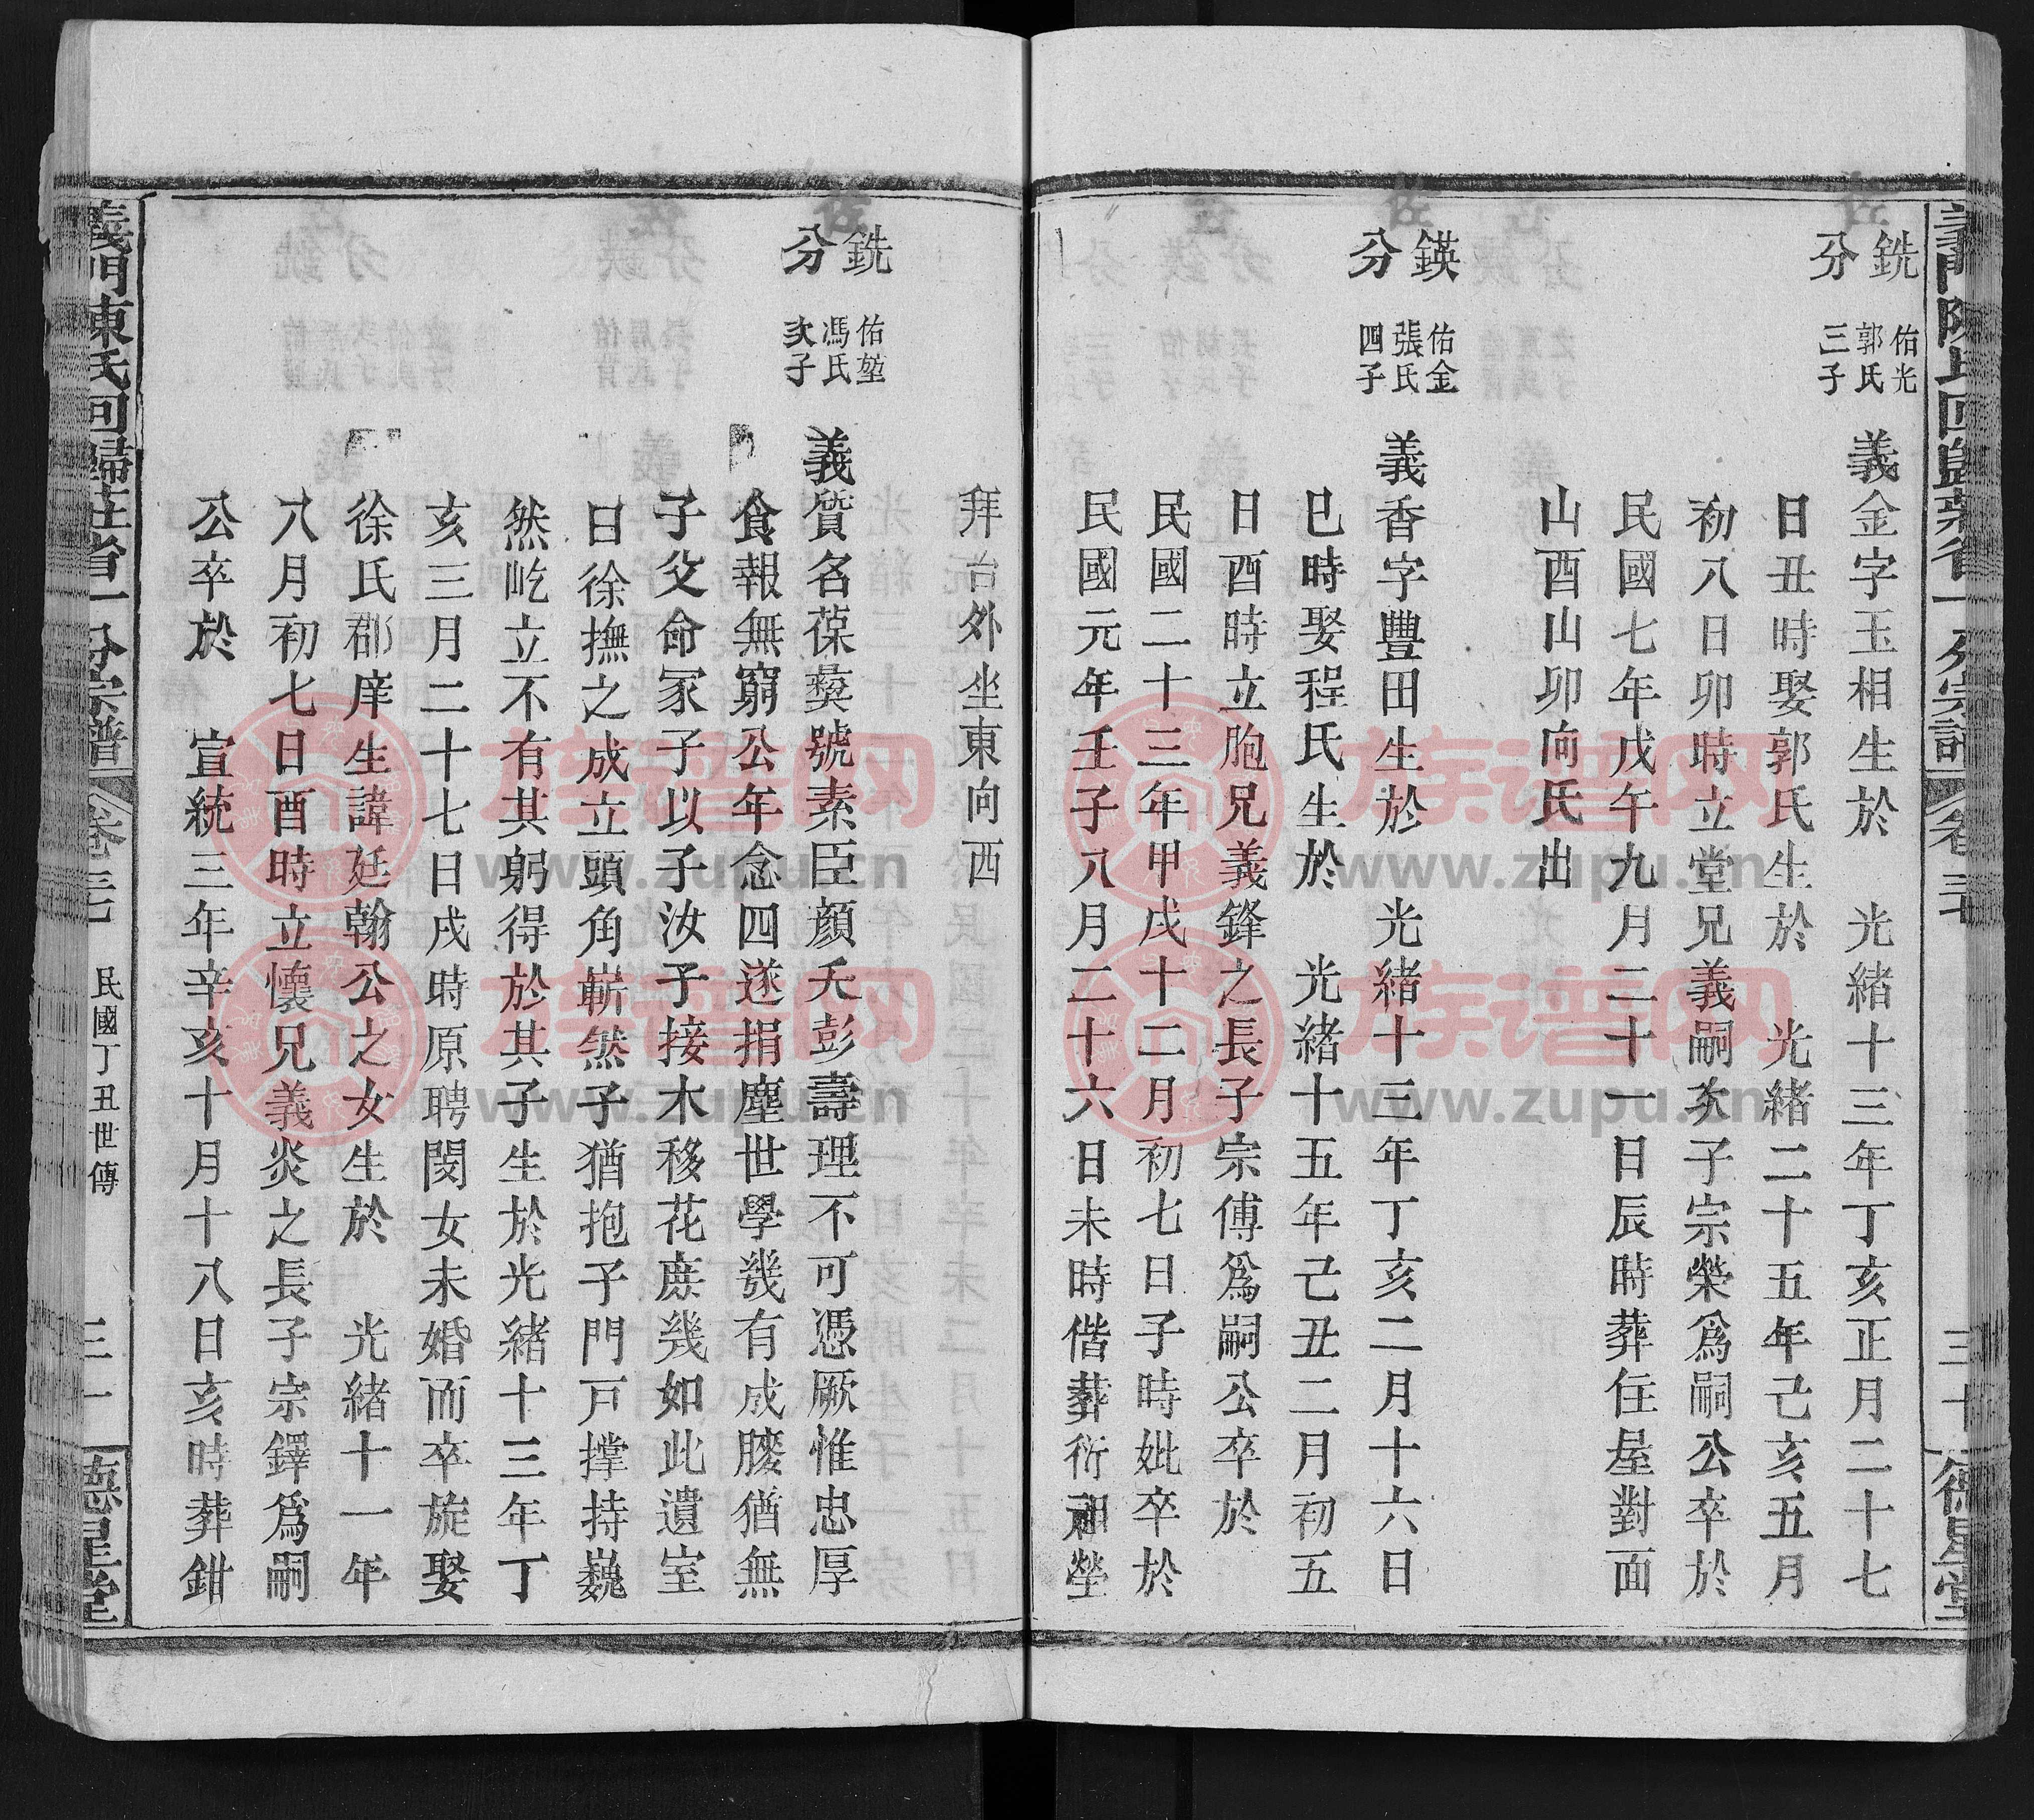 義門陳氏回歸莊省一分宗譜 卷三七 三十 德星堂
銑分 佑光郭氏三子
義金字玉相生於 光緒十三年丁亥正月二十七
日丑時娶郭氏生於 光緒二十五年己亥五月
初八日卯時立堂兄義嗣次子宗榮爲嗣公卒於
民國七年戊午九月二十一日辰時葬住屋對面
山酉山卯向氏出
鍈分 佑金張氏四子
義香字豐田生於 光緒十三年丁亥二月十六日
巳時娶程氏生於 光緒十五年己丑二月初五
日酉時立胞兄義鋒之長子宗傅爲嗣公卒於
民國二十三年甲戌十二月初七日子時妣卒於
民國元年壬子八月二十六日未時偕葬衍祖塋
拜台外坐東向西
銑分 佑堃馮氏次子
義質名葆彝號素臣顏夭彭壽理不可憑厥惟忠厚
食報無窮公年念四遂捐塵世學幾有成媵猶無
子父命冢子以子汝子接木移花庶幾如此遺室
曰徐撫之成立頭角嶄然子猶抱子門戸撑持巍
然屹立不有其躬得於其子生於光緒十三年丁
亥三月二十七日戌時原聘閔女未婚而卒旋娶
徐氏郡庠生諱廷翰公之女生於 光緒十一年
八月初七日酉時立懷兄義炎之長子宗鐸爲嗣
公卒於 宣統三年辛亥十月十八日亥時葬鉗
義門陳氏回歸莊省一分宗譜 卷三七 民國丁丑世傳 三十一 德星堂
族谱网
www.zupu.cn
族谱网
www.zupu.cn
族谱网
www.zupu.cn
族谱网
www.zupu.cn